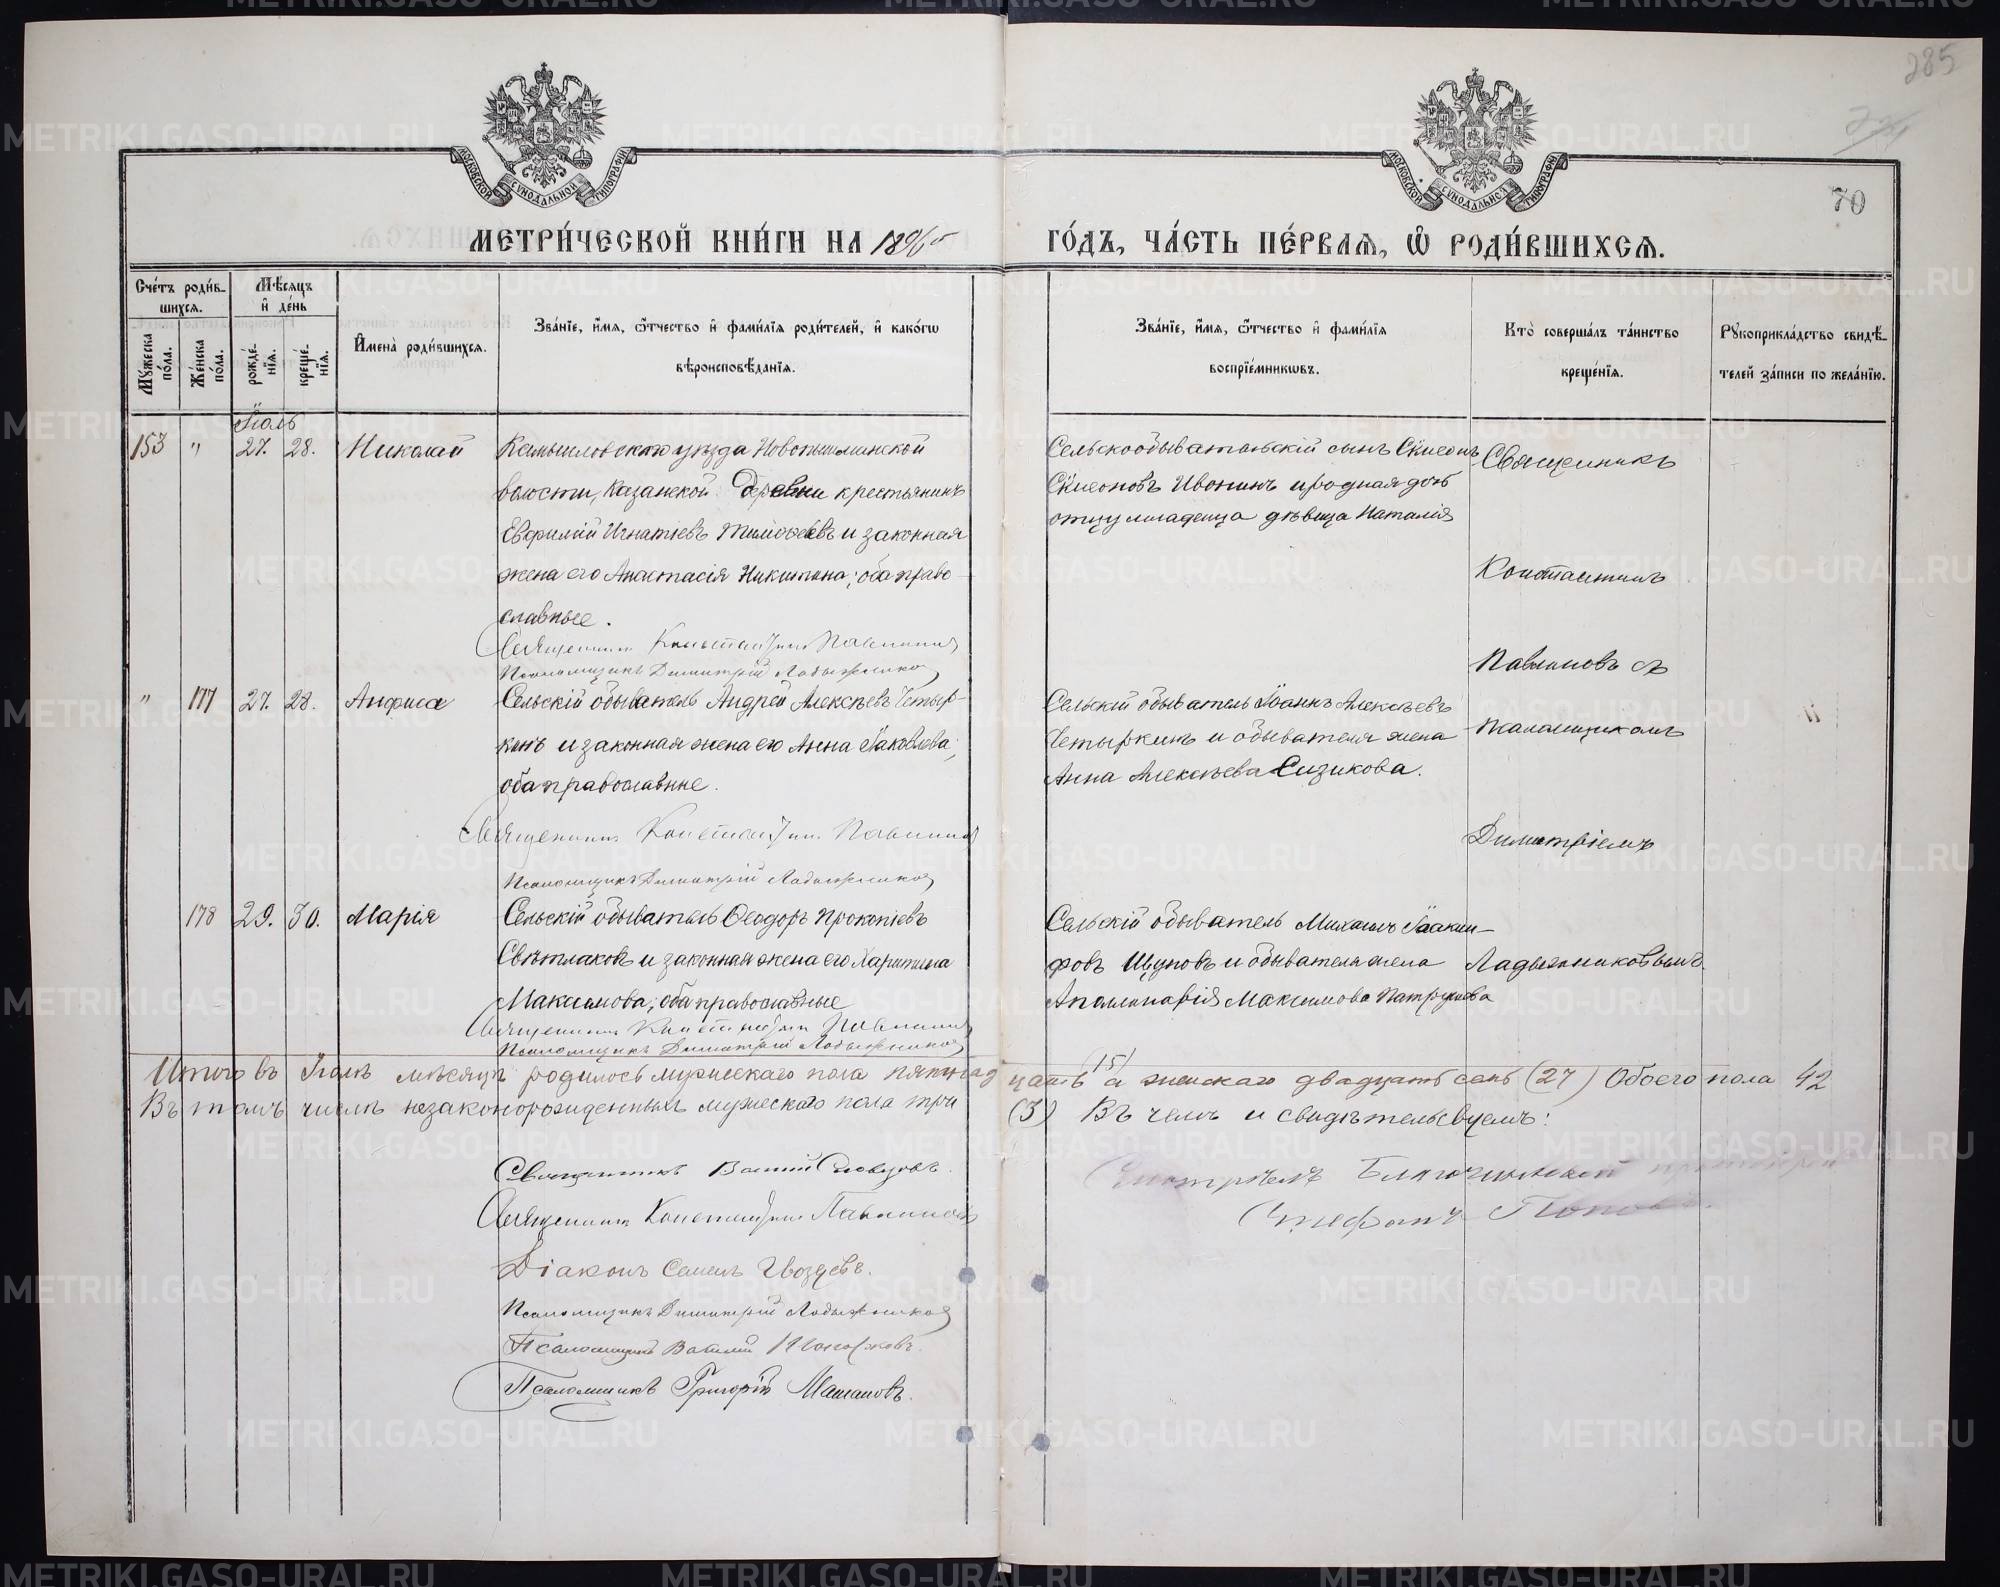 285
70
МОСКОВСКОЙ СѴНОДАЛЬНОЙ ТИПОГРАФІИ
МОСКОВСКОЙ СѴНОДАЛЬНОЙ ТИПОГРАФІИ
МЕТРИ́ЧЕСКОЙ КНИ́ГИ НА 1896 ГО́ДЪ, ЧА́СТЬ ПЕ́РВАЯ, Ѽ РОДИ́ВШИХСЯ.
Сче́тъ роди́в-
шихся.
Мѣ́сяцъ
и҆ де́нь
Му́жеска по́ла.
Же́нска по́ла.
рожде́-
нїя.
креще́-
нїя.
И҆мена̀ роди́вшихся.
Зва́нїе, и҆́мя, ѻ҆́тчество и҆ фами́лїя роди́телей, и҆ како́гѡ
вѣроисповѣ́данїя.
Зва́нїе, и҆́мя, ѻ҆́тчество и҆ фами́лїя
воспрїе́мникѡвъ.
Кто̀ соверша́лъ та́инство
креще́нїя.
Рꙋкоприкла́дство свидѣ́-
телей за́писи по жела́нїю.
Іюль
153 " 27. 28. Николай
Камышловскаго уѣзда Новопышминской
волости, Казанской деревни крестьянинъ
Евфимій Игнатіевъ Тимоѳеевъ и законная
жена его Анастасія Никитина; оба право-
славные.
Священникъ Константинъ Павлиновъ
Псаломщикъ Димитрій Ладыжниковъ
Сельскообывательскій сынъ Сѵмеонъ
Сѵмеоновъ Ивонинъ и родная дочь
отцу младенца дѣвица Наталія
Священникъ
Константинъ
Павлиновъ съ
псаломщикомъ
Димитріемъ
Ладыжниковымъ.
" 177 27. 28. Анфиса
Сельскій обыватель Андрей Алексѣевъ Четыр-
кинъ и законная жена его Анна Іаковлева;
оба православные.
Священникъ Константинъ Павлиновъ
Псаломщикъ Димитрій Ладыжниковъ
Сельскій обыватель Іоаннъ Алексѣевъ
Четыркинъ и обывателя жена
Анна Алексѣева Сизикова.
178 29. 30. Марія
Сельскій обыватель Ѳеодоръ Прокопіевъ
Свѣтлаковъ и законная жена его Харитина
Максимова; оба православные
Священникъ Константинъ Павлиновъ
Псаломщикъ Димитрій Ладыжниковъ
Сельскій обыватель Михаилъ Іоаким-
фовъ Щуповъ и обывателя жена
Аполлинарія Максимова
Итого въ Іюлѣ мѣсяцѣ родилось мужескаго пола пятнадцать (15) а женскаго двадцать семь (27) Обоего пола 42
Въ томъ числѣ незаконорожденныхъ мужескаго пола три (3) Въ чемъ и свидѣтельсвуемъ:
Священникъ Василій Словцовъ.
Священникъ Константинъ Павлиновъ
Діаконъ Самуилъ Гвоздевъ.
Псаломщикъ Димитрій Ладыжниковъ
Псаломщикъ Василій
Псаломщикъ Григорій
Смотрѣлъ Благочинный протоіерей
Стефанъ Поповъ.
METRIKI.GASO-URAL.RU